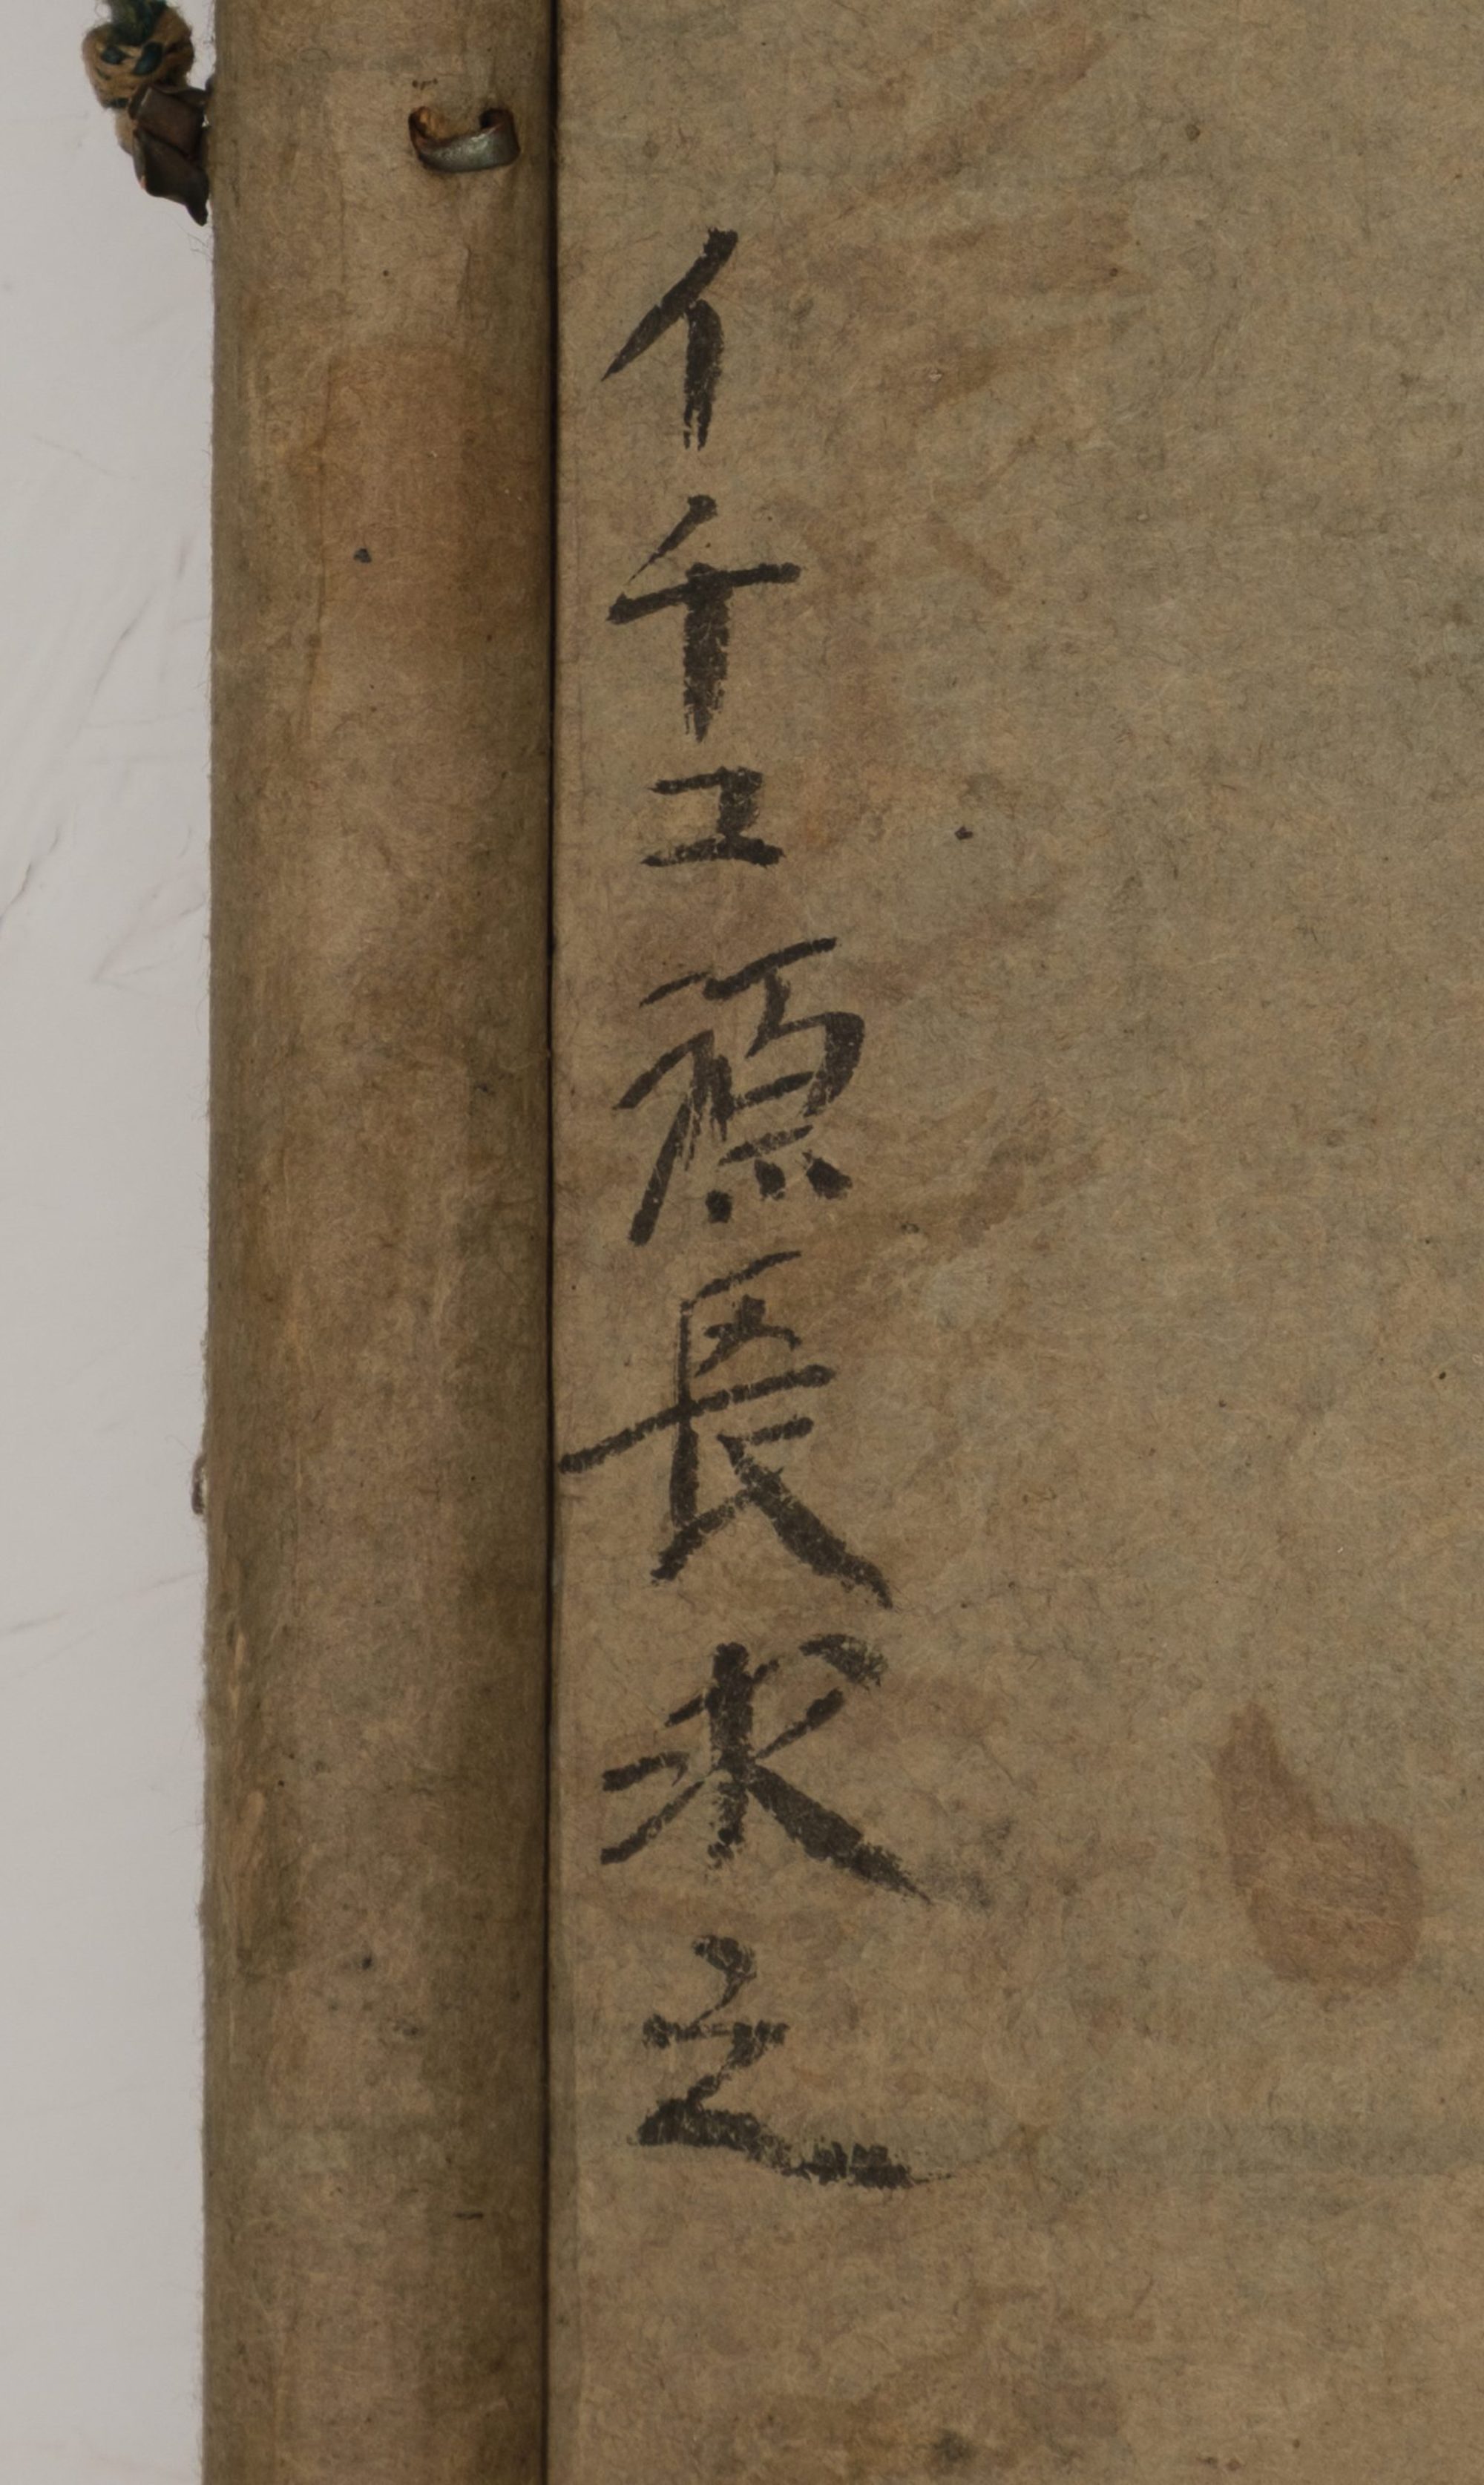 イチユ源長求之